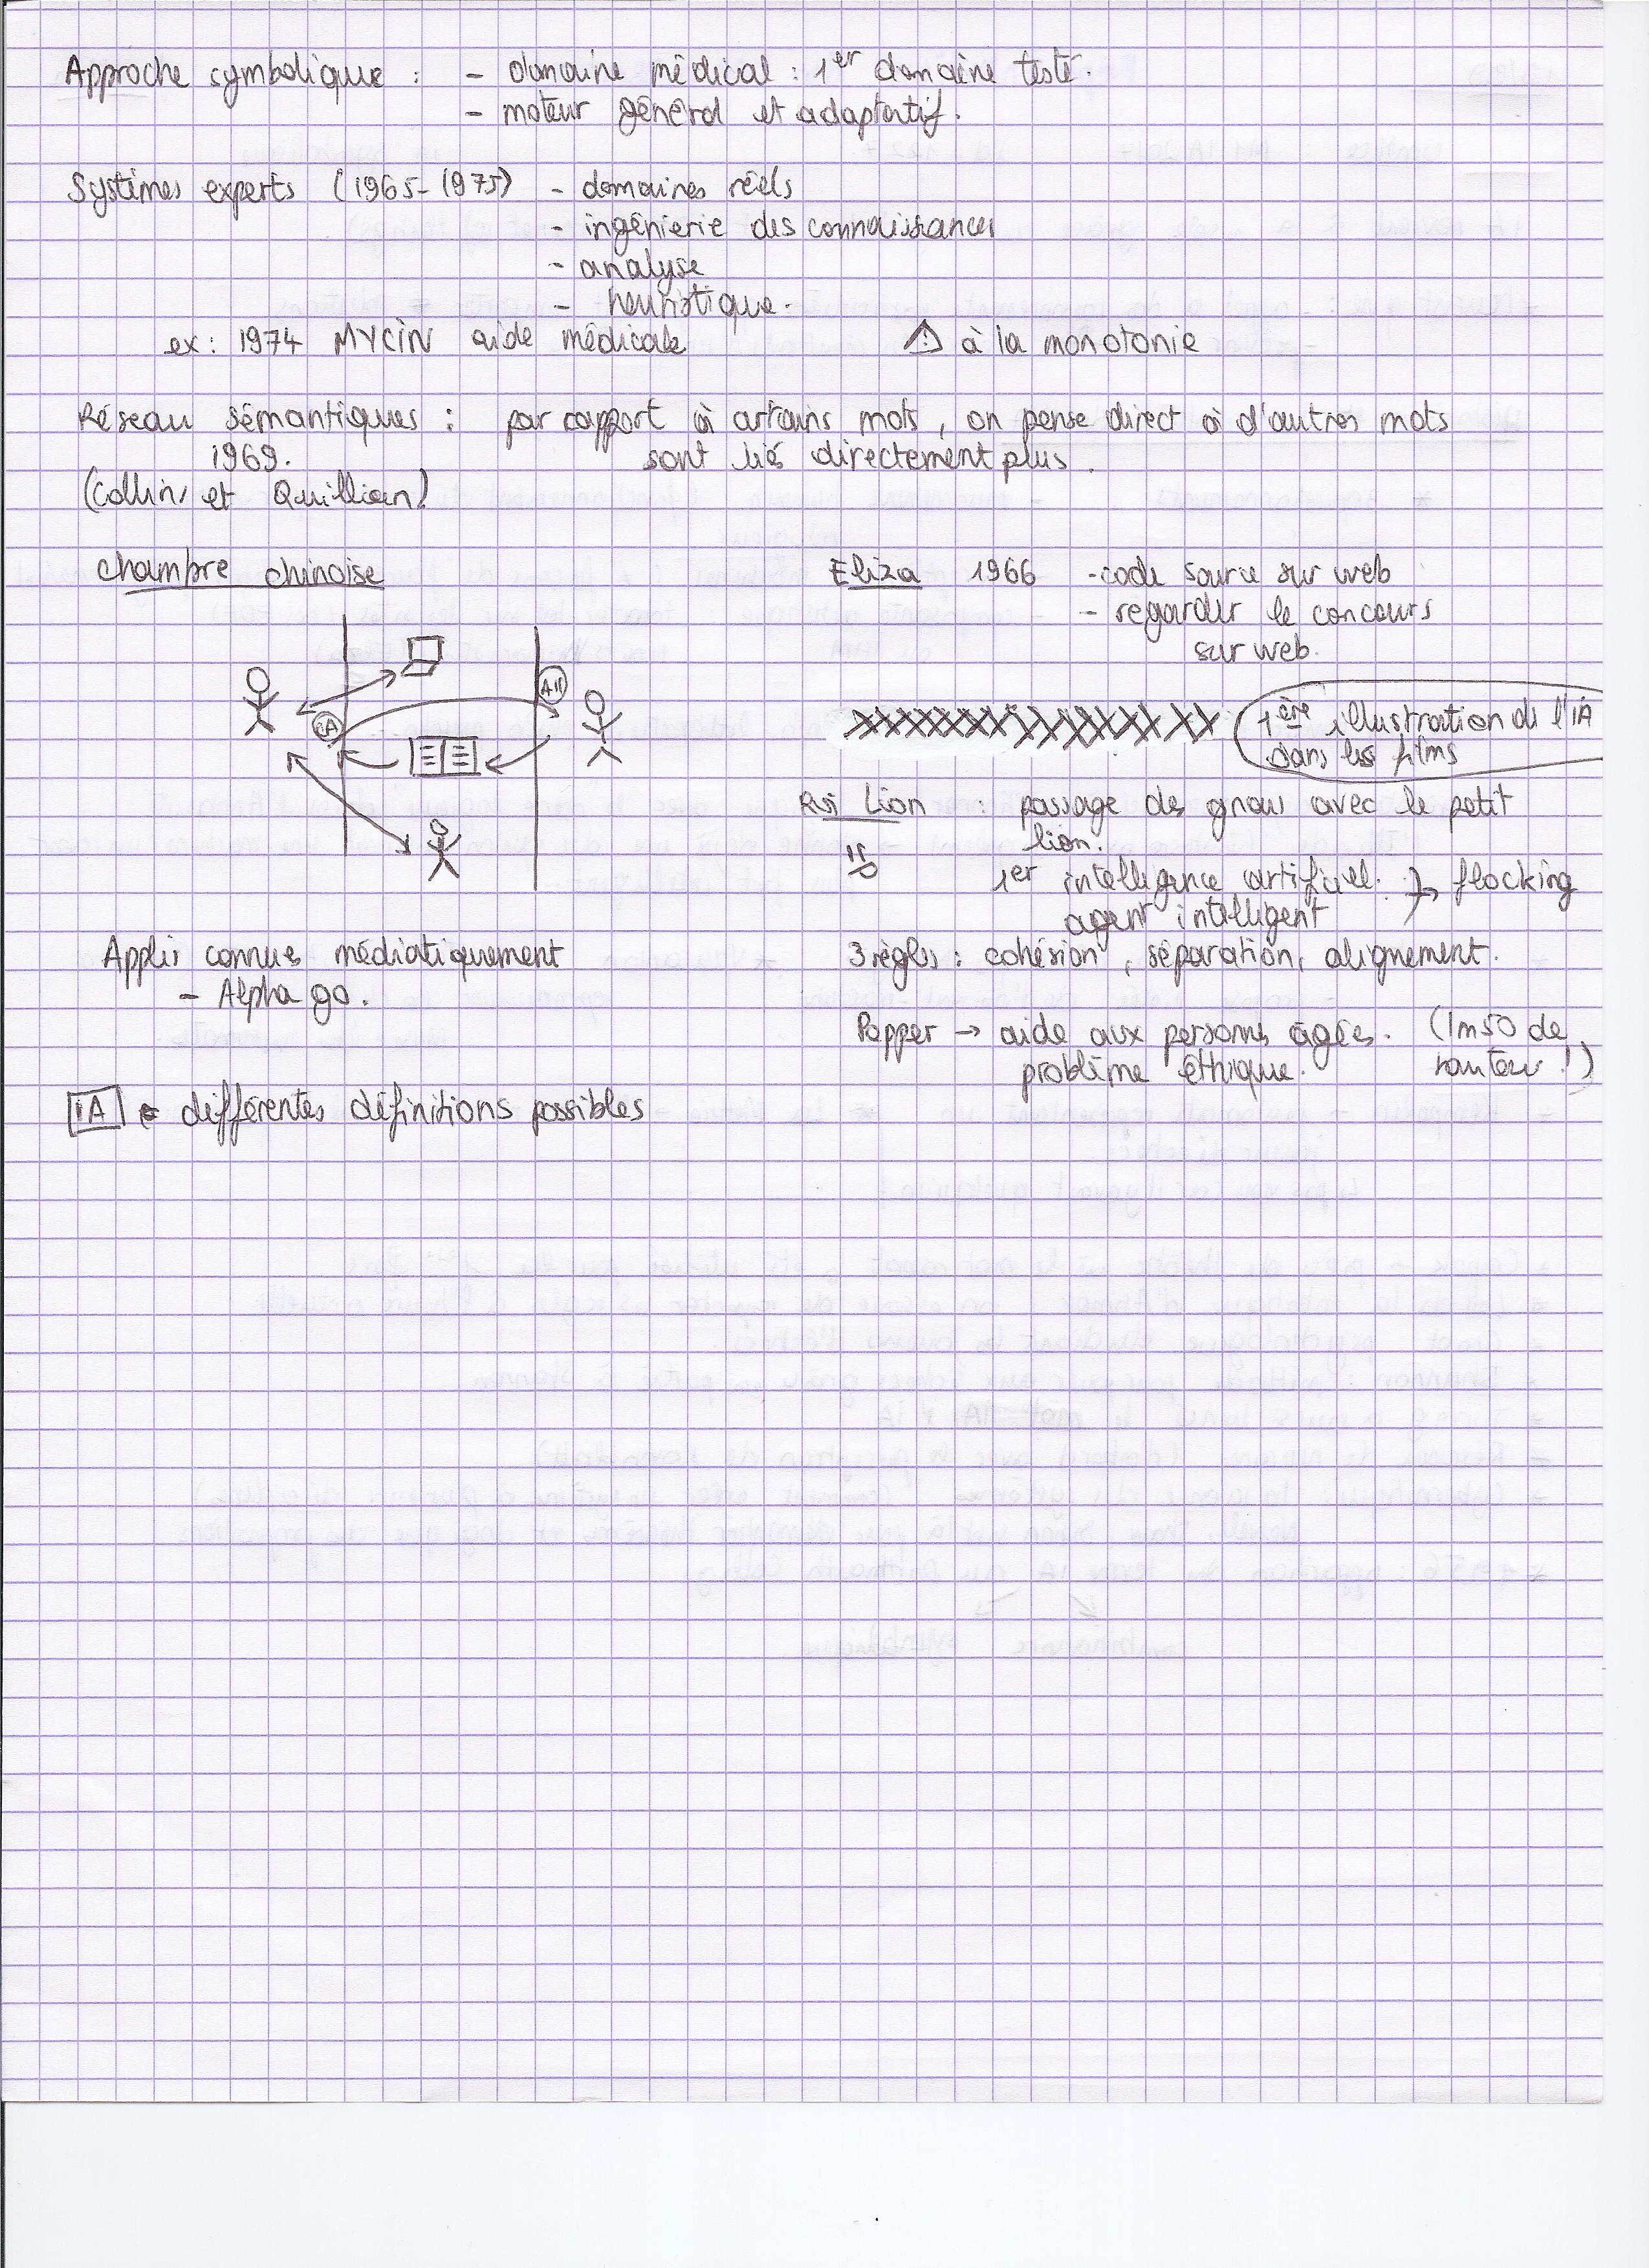 Approche symbolique : - domaine médical : 1er domaine testé.
- moteur général et adaptatif.
Systèmes experts (1965-1975) - domaines réels
- ingénierie des connaissances
- analyse
- heuristique.
ex : 1974 MYCIN aide médicale ⚠ à la monotonie
Réseau sémantiques : par rapport à certains mots, on pense direct à d'autres mots
1969. sont liés directement plus.
(Collins et Quillian)
Chambre chinoise
Eliza 1966 - code source sur web
- regarder le concours
sur web.
1ère illustration de l'IA
dans les films
Roi Lion : passage des gnous avec le petit
lion.
1er intelligence artificiel. } → flocking
agent intelligent
3 règles : cohésion, séparation, alignement.
Applis connues médiatiquement
- Alpha go.
Pepper → aide aux personnes âgées. (1m50 de
problème éthique. hauteur !)
IA = différentes définitions possibles